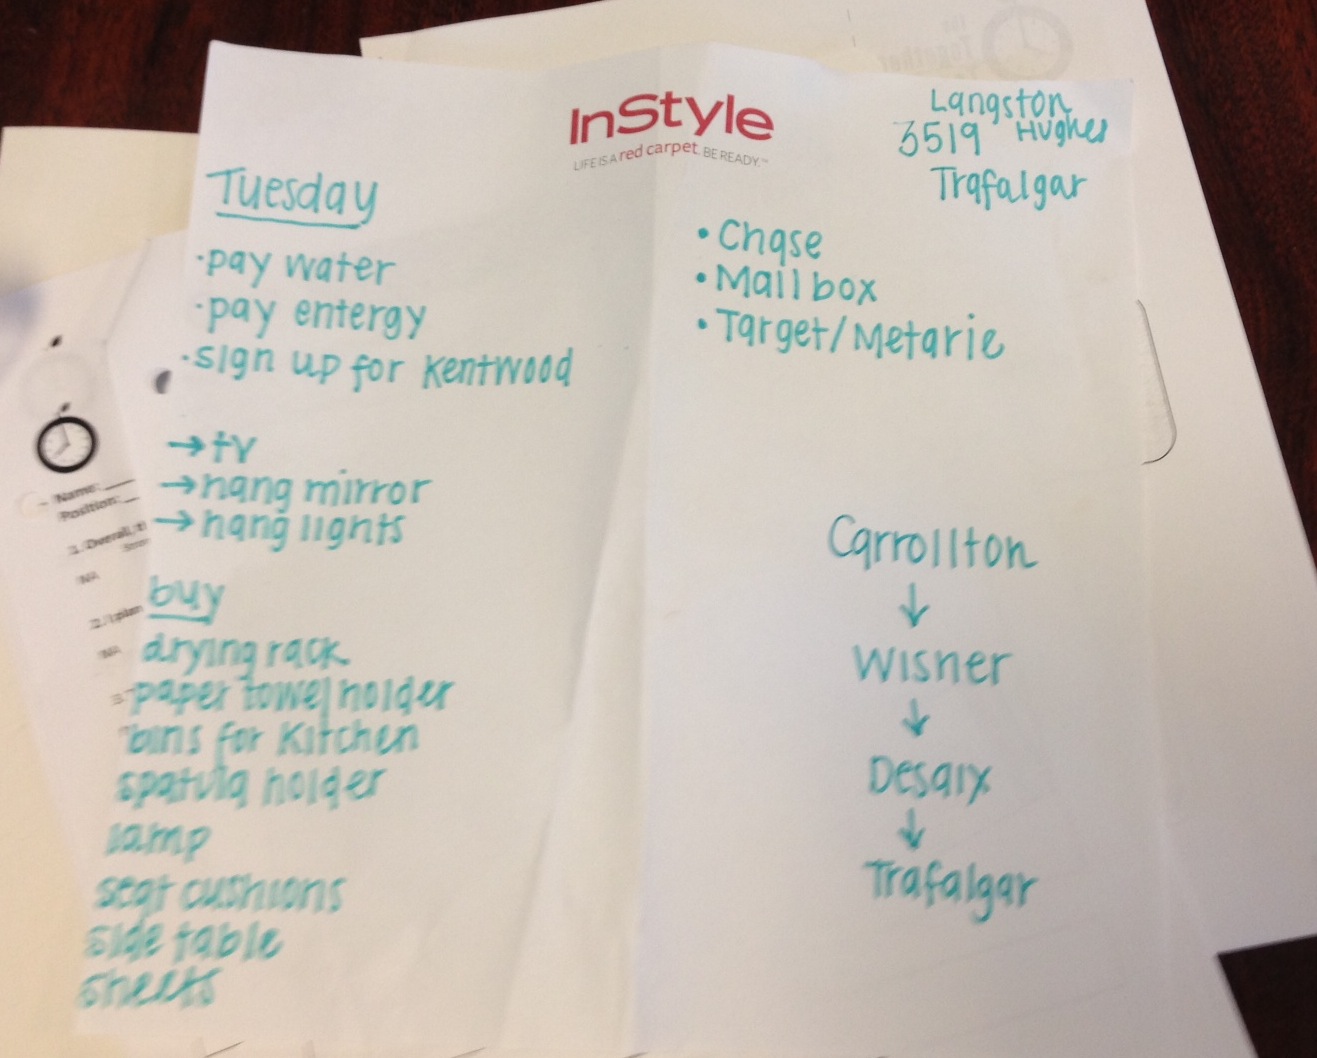 InStyle
LIFE IS A red carpet. BE READY.™
Langston
3519 Hughes
Trafalgar
Tuesday
·pay water
·pay entergy
·sign up for Kentwood
→tv
→hang mirror
→hang lights
buy
drying rack
paper towel holder
bins for Kitchen
spatula holder
lamp
seat cushions
side table
sheets
•Chase
•Mailbox
•Target/Metarie
Carrollton
↓
Wisner
↓
Desaix
↓
Trafalgar
Name:
Position:
1. Overall,
NA
2. I plan
NA
3.
Together